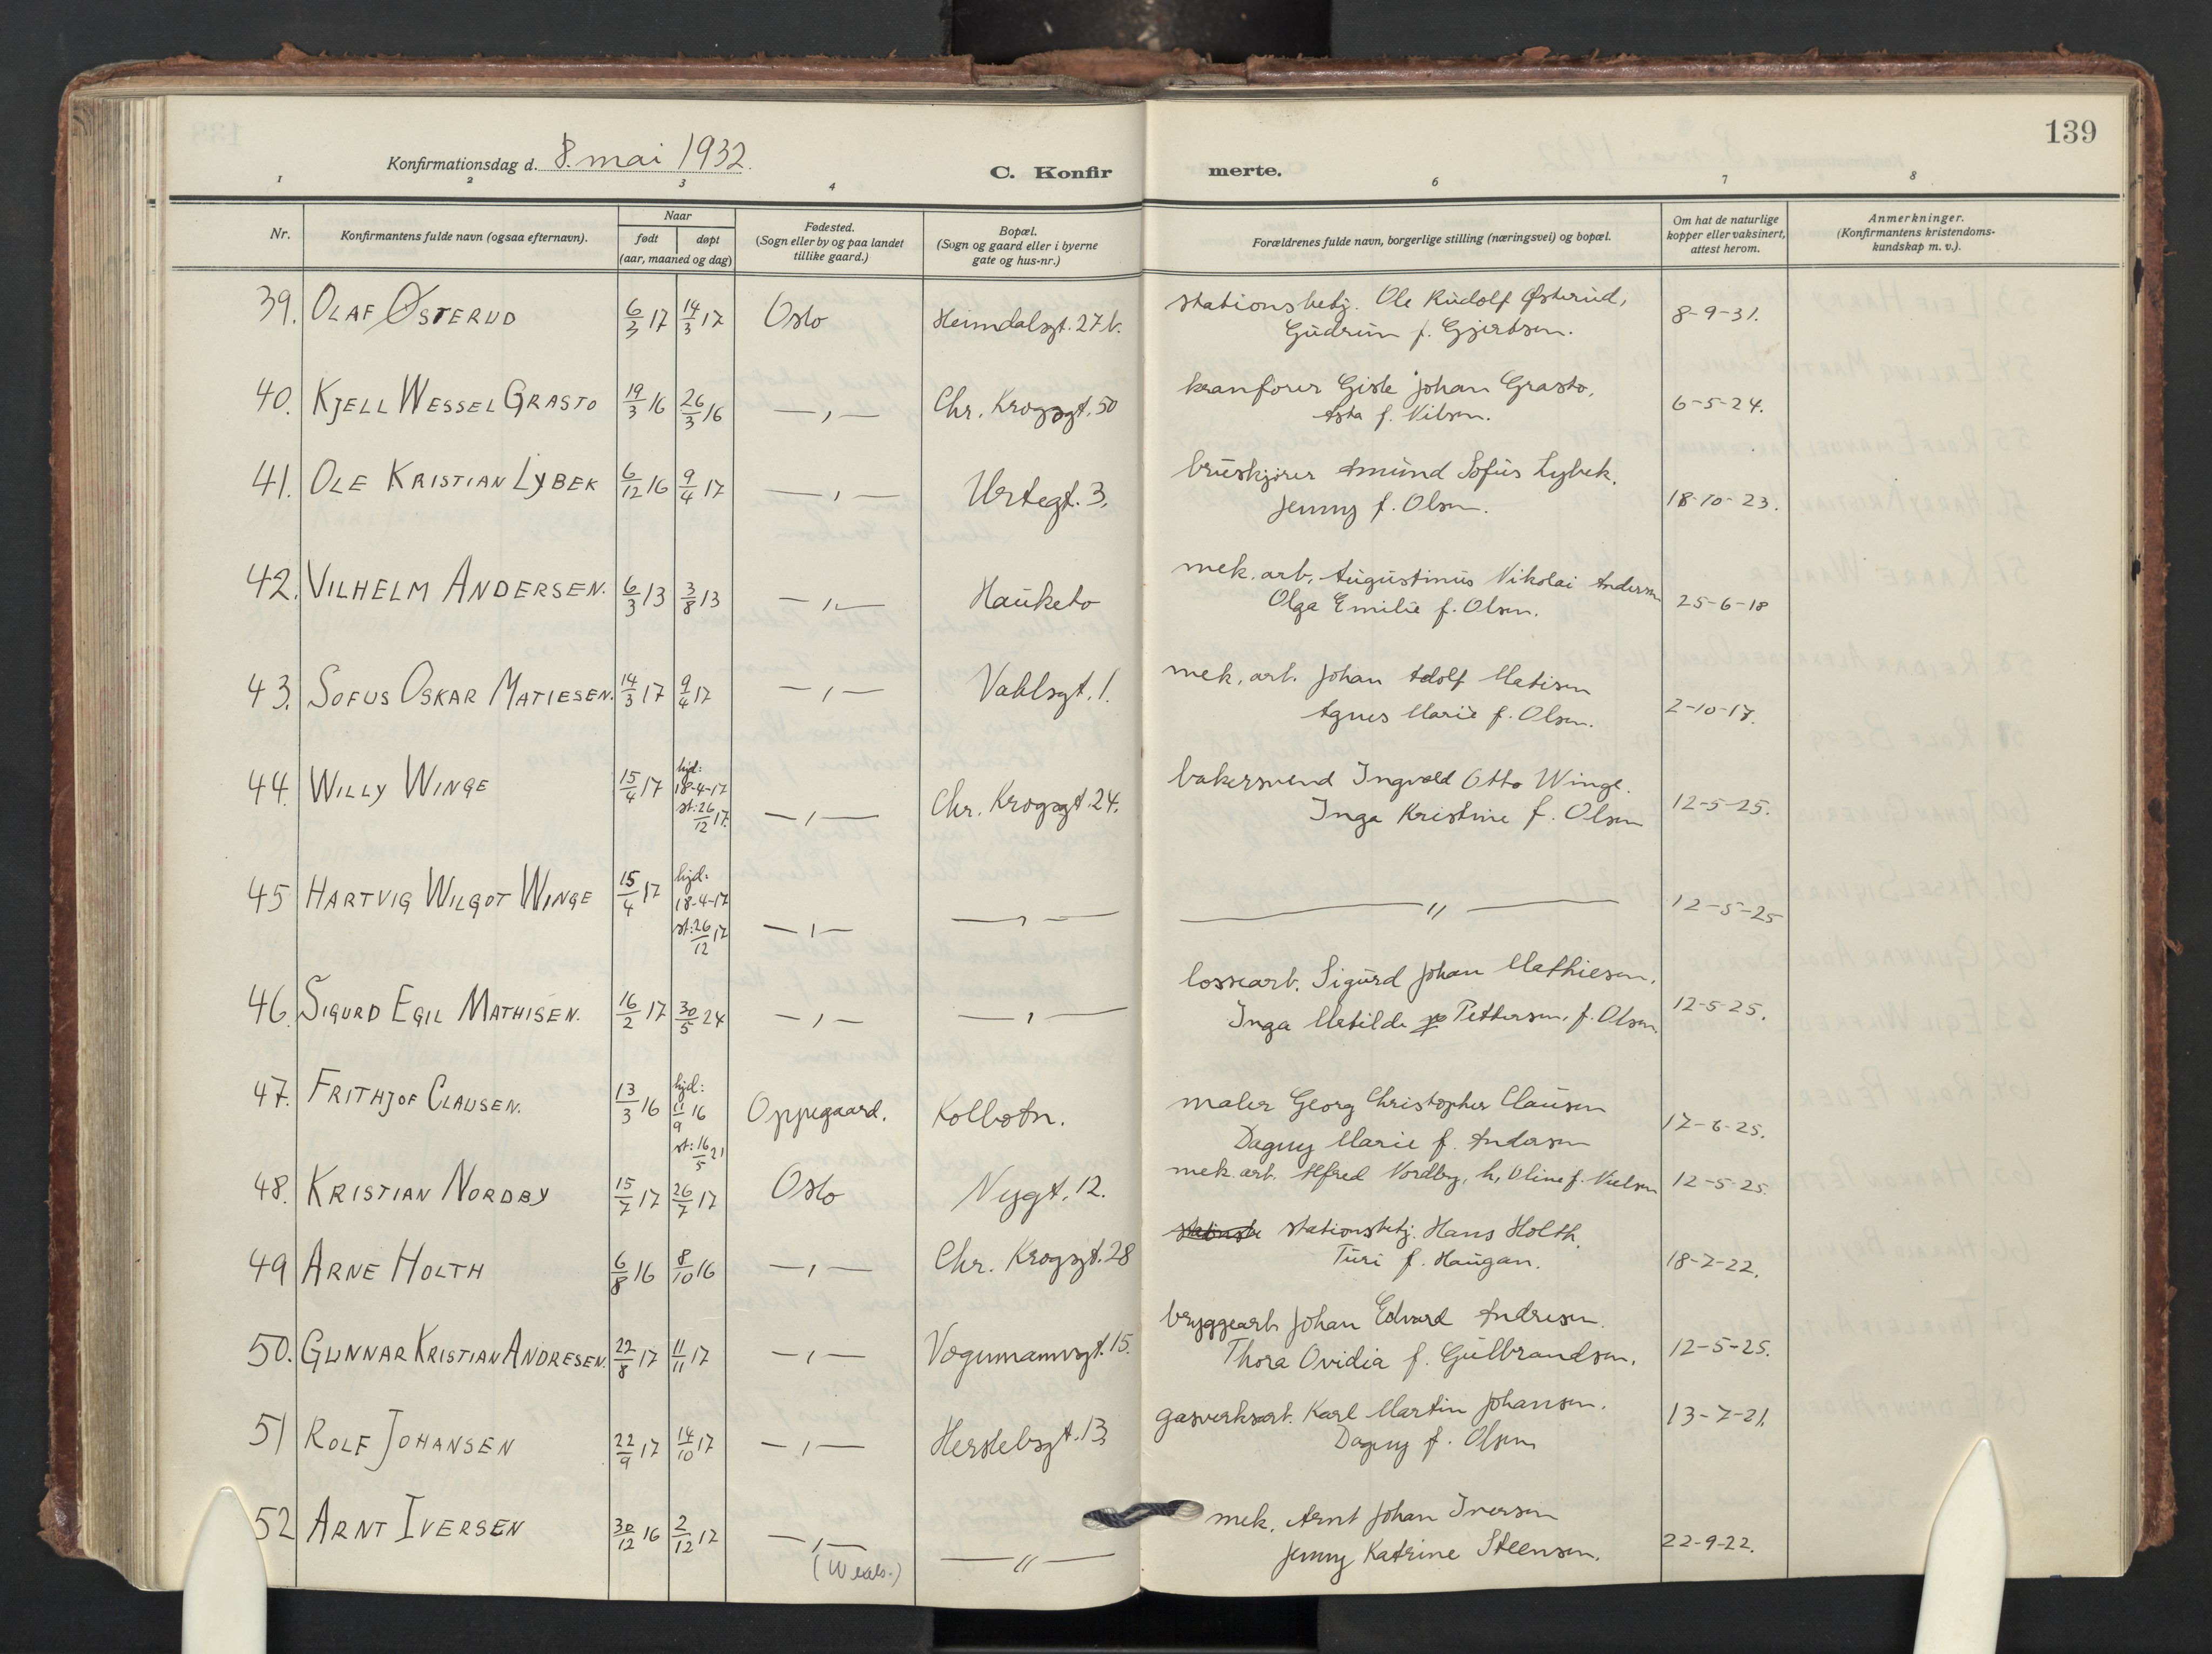 139
Konfirmationsdag d. 8. mai 1932.
C. Konfirmerte.
1 2 3 4 6 7 8
Nr.
Konfirmantens fulde navn (ogsaa efternavn).
Naar
født døpt
(aar, maaned og dag)
Fødested.
(Sogn eller by og paa landet
tillike gaard.)
Bopæl.
(Sogn og gaard eller i byerne
gate og hus-nr.)
Forældrenes fulde navn, borgerlige stilling (næringsvei) og bopæl.
Om hat de naturlige
kopper eller vaksinert,
attest herom.
Anmerkninger.
(Konfirmantens kristendoms-
kundskap m. v.).
39. OLAF ØSTERUD 6/3 17 14/3 17 Oslo Heimdalsgt. 27 b. stationsbetj. Ole Rudolf Østerud, 8-9-31.
Gudrun f. Gjertsen.
40. KJELL WESSEL GRASTO 19/3 16 26/3 16 — , — Chr. Krogsgt. 50 kranfører Gisle Johan Grasto. 6-5-24.
Asta f. Nilsen.
41. OLE KRISTIAN LYBEK 6/12 16 9/4 17 — , — Urtegt. 3. bruskjører Amund Sofus Lybek. 18-10-23.
Jenny f. Olsen.
42. VILHELM ANDERSEN. 6/3 13 3/8 13 — , — Hauketo mek. arb. Augustinus Nikolai Andersen 25-6-18
Olga Emilie f. Olsen.
43. SOFUS OSKAR MATIESEN. 14/3 17 9/4 17 — , — Vahlsgt. 1. mek. arb. Johan Adolf Matisen 2-10-17.
Agnes Marie f. Olsen.
44. WILLY WINGE 15/4 17 hjd: 18-4-17 st: 26/12 17. — , — Chr. Krogsgt. 24. bakersvend Ingvald Otto Winge. 12-5-25.
Inga Kristine f. Olsen
45 HARTVIG WILGOT WINGE 15/4 17 hjd: 18-4-17 st: 26/12 17 — , — — , — — " — 12-5-25
46. SIGURD EGIL MATHISEN. 16/2 17 30/5 24 — , — — , — lossearb. Sigurd Johan Mathiesen. 12-5-25.
Inga Matilde Pettersen, f. Olsen.
47. FRITHJOF CLAUSEN. 13/3 16 hjd: 11/9 16 st: 16/5 21 Oppegaard. Kolbotn. maler Georg Christopher Clausen 17-6-25.
Dagny Marie f. Andersen
48. KRISTIAN NORDBY 15/7 17 26/7 17 Oslo Nygt. 12. mek. arb. Alfred Nordby, h, Oline f. Nielsen 12-5-25.
49 ARNE HOLTH 6/8 16 8/10 16 — , — Chr. Krogsgt. 28 stationsbetj. Hans Holth. 18-7-22.
Turi f. Haugan.
50. GUNNAR KRISTIAN ANDRESEN. 22/8 17 11/11 17 — , — Vognmannsgt. 15. bryggearb. Johan Edvard Andresen. 12-5-25.
Thora Ovidia f. Gulbrandsen.
51 ROLF JOHANSEN 22/9 17 14/10 17 — , — Herslebsgt. 13. gasverksarb. Karl Martin Johansen. 13-7-21.
Dagny f. Olsen
52 ARNT IVERSEN 30/12 16 2/12 17 — , — — " — mek. Arnt Johan Iversen 22-9-22.
Jenny Katrine Steensen.